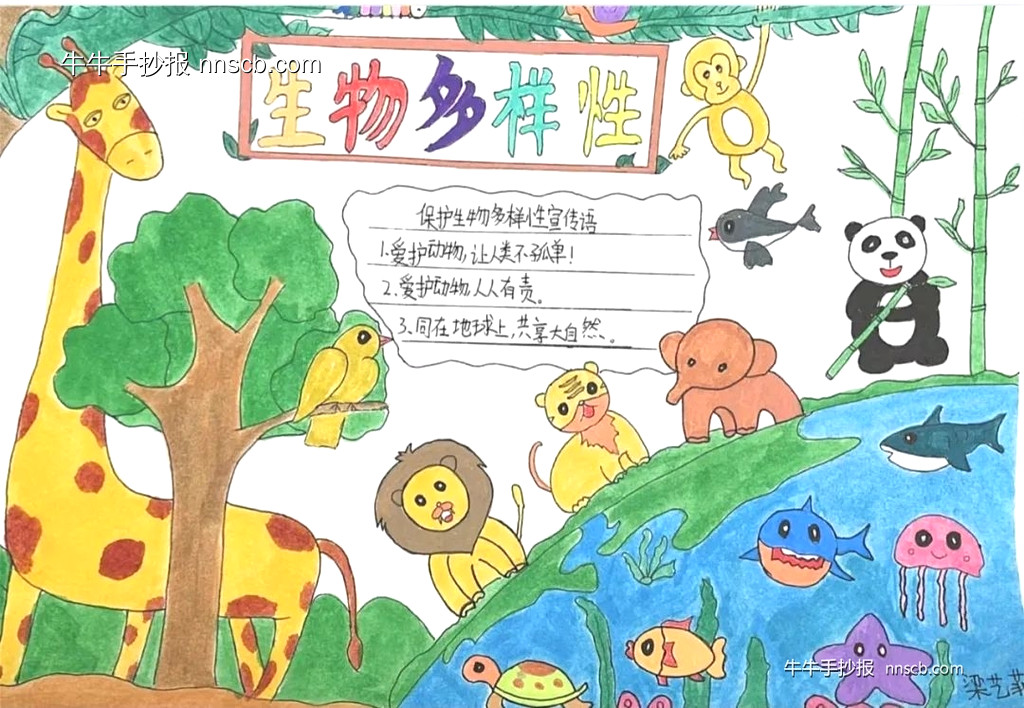 牛牛手抄报 nnscb.com
生物多样性
保护生物多样性宣传语
1.爱护动物,让人类不孤单!
2.爱护动物人人有责。
3、同在地球上,共享大自然。
牛牛手抄报 nnscb.com
梁艺